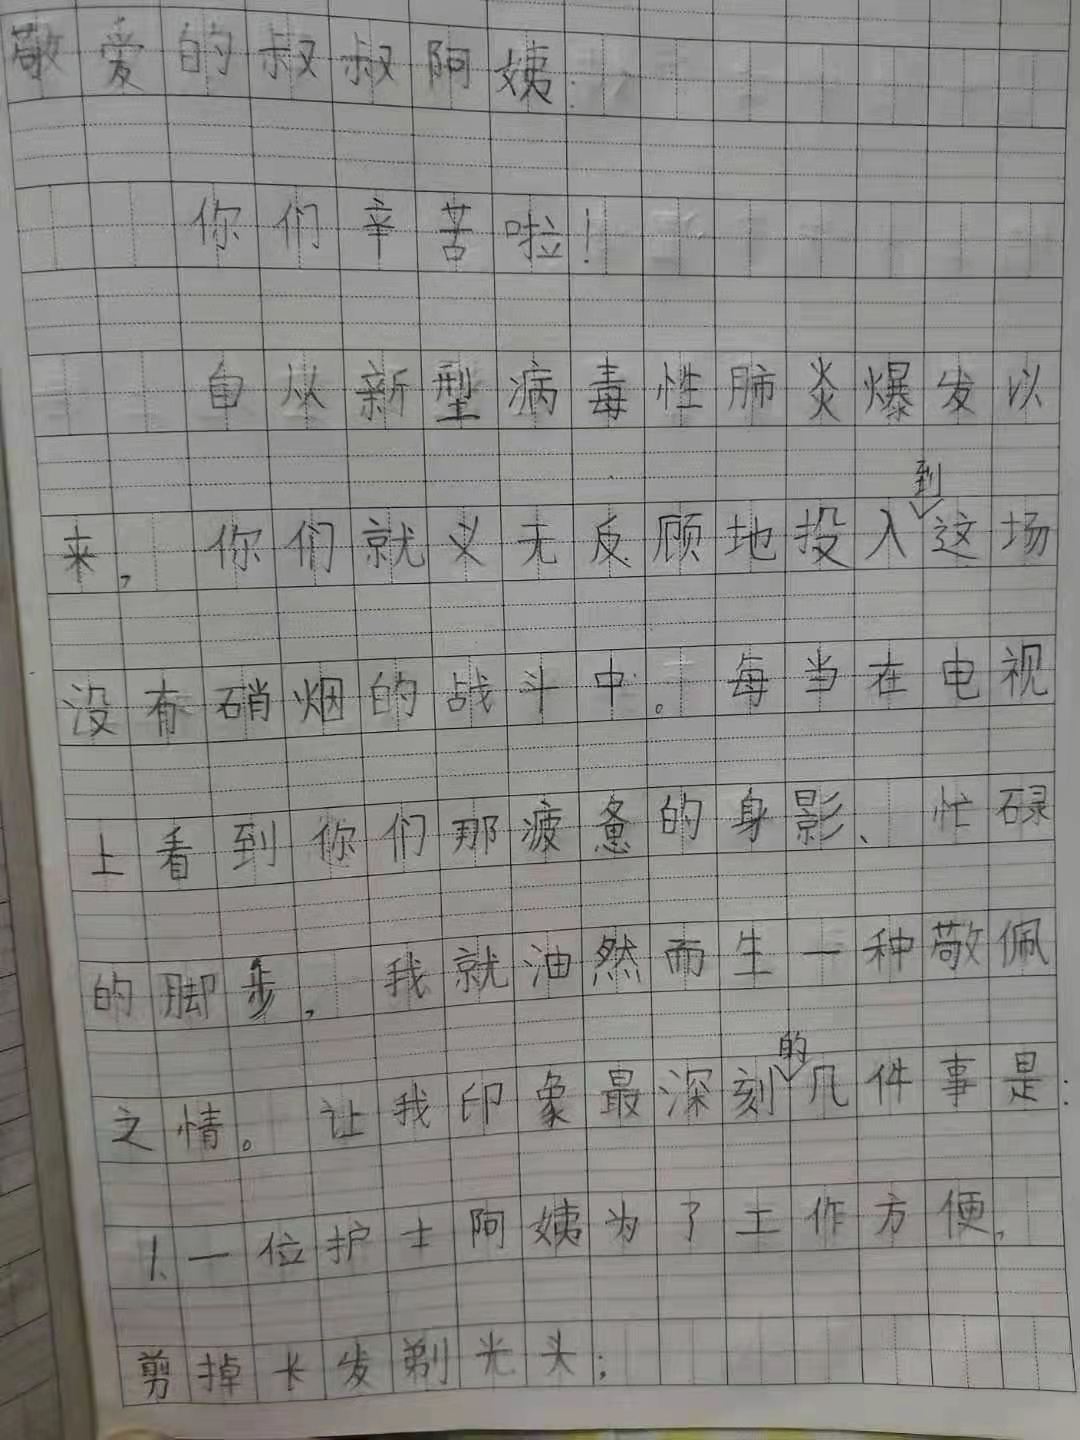 敬爱的叔叔阿姨：
你们辛苦啦！
自从新型病毒性肺炎爆发以
来，你们就义无反顾地投入到这场
没有硝烟的战斗中。每当在电视
上看到你们那疲惫的身影、忙碌
的脚步，我就油然而生一种敬佩
之情。让我印象最深刻的几件事是：
1.一位护士阿姨为了工作方便，
剪掉长发剃光头；